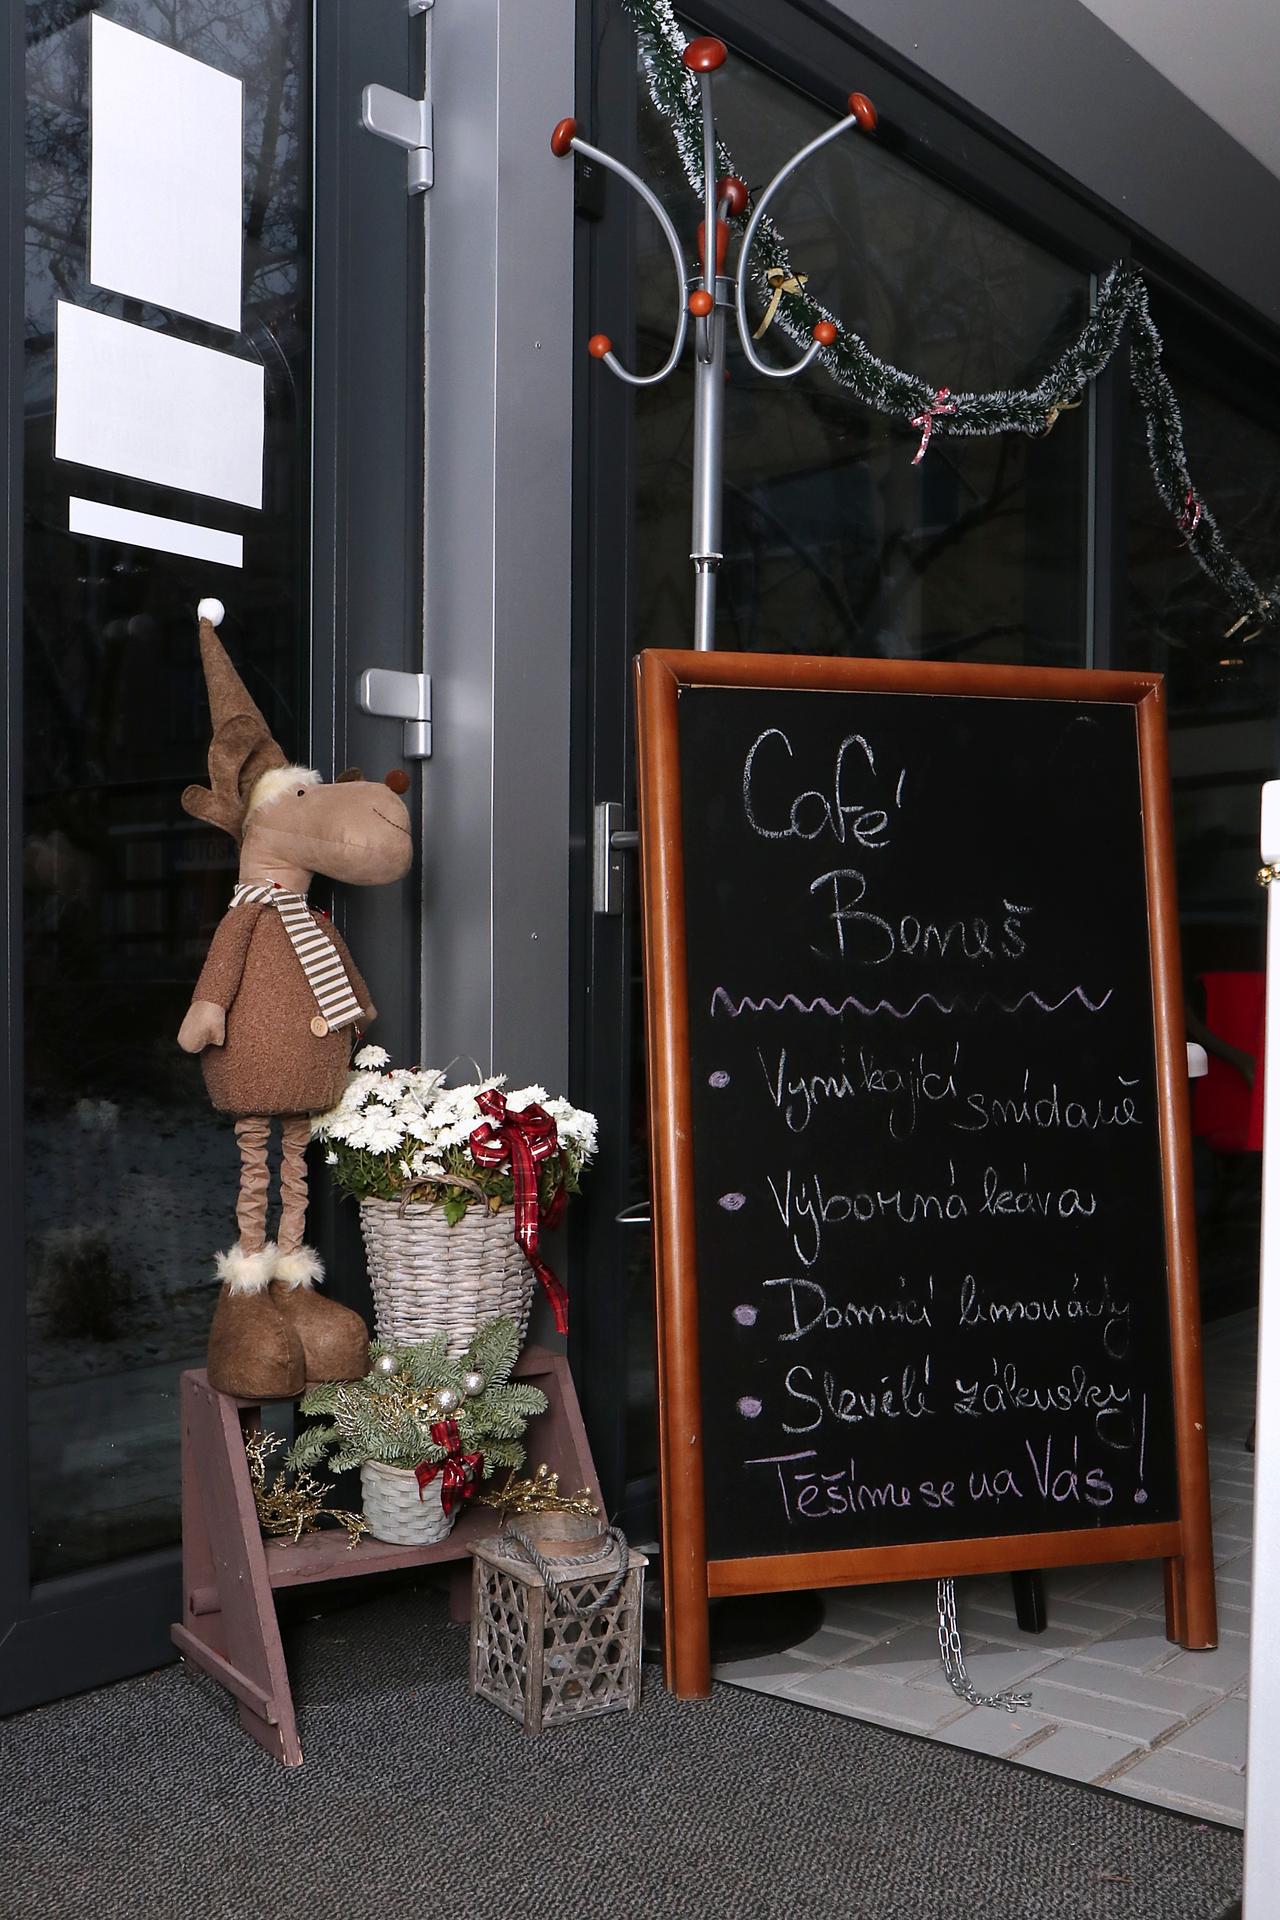 Café
Beneš
• Vynikající snídaně
• Výborná káva
• Domácí limonády
• Skvělé zákusky
Těšíme se na Vás!